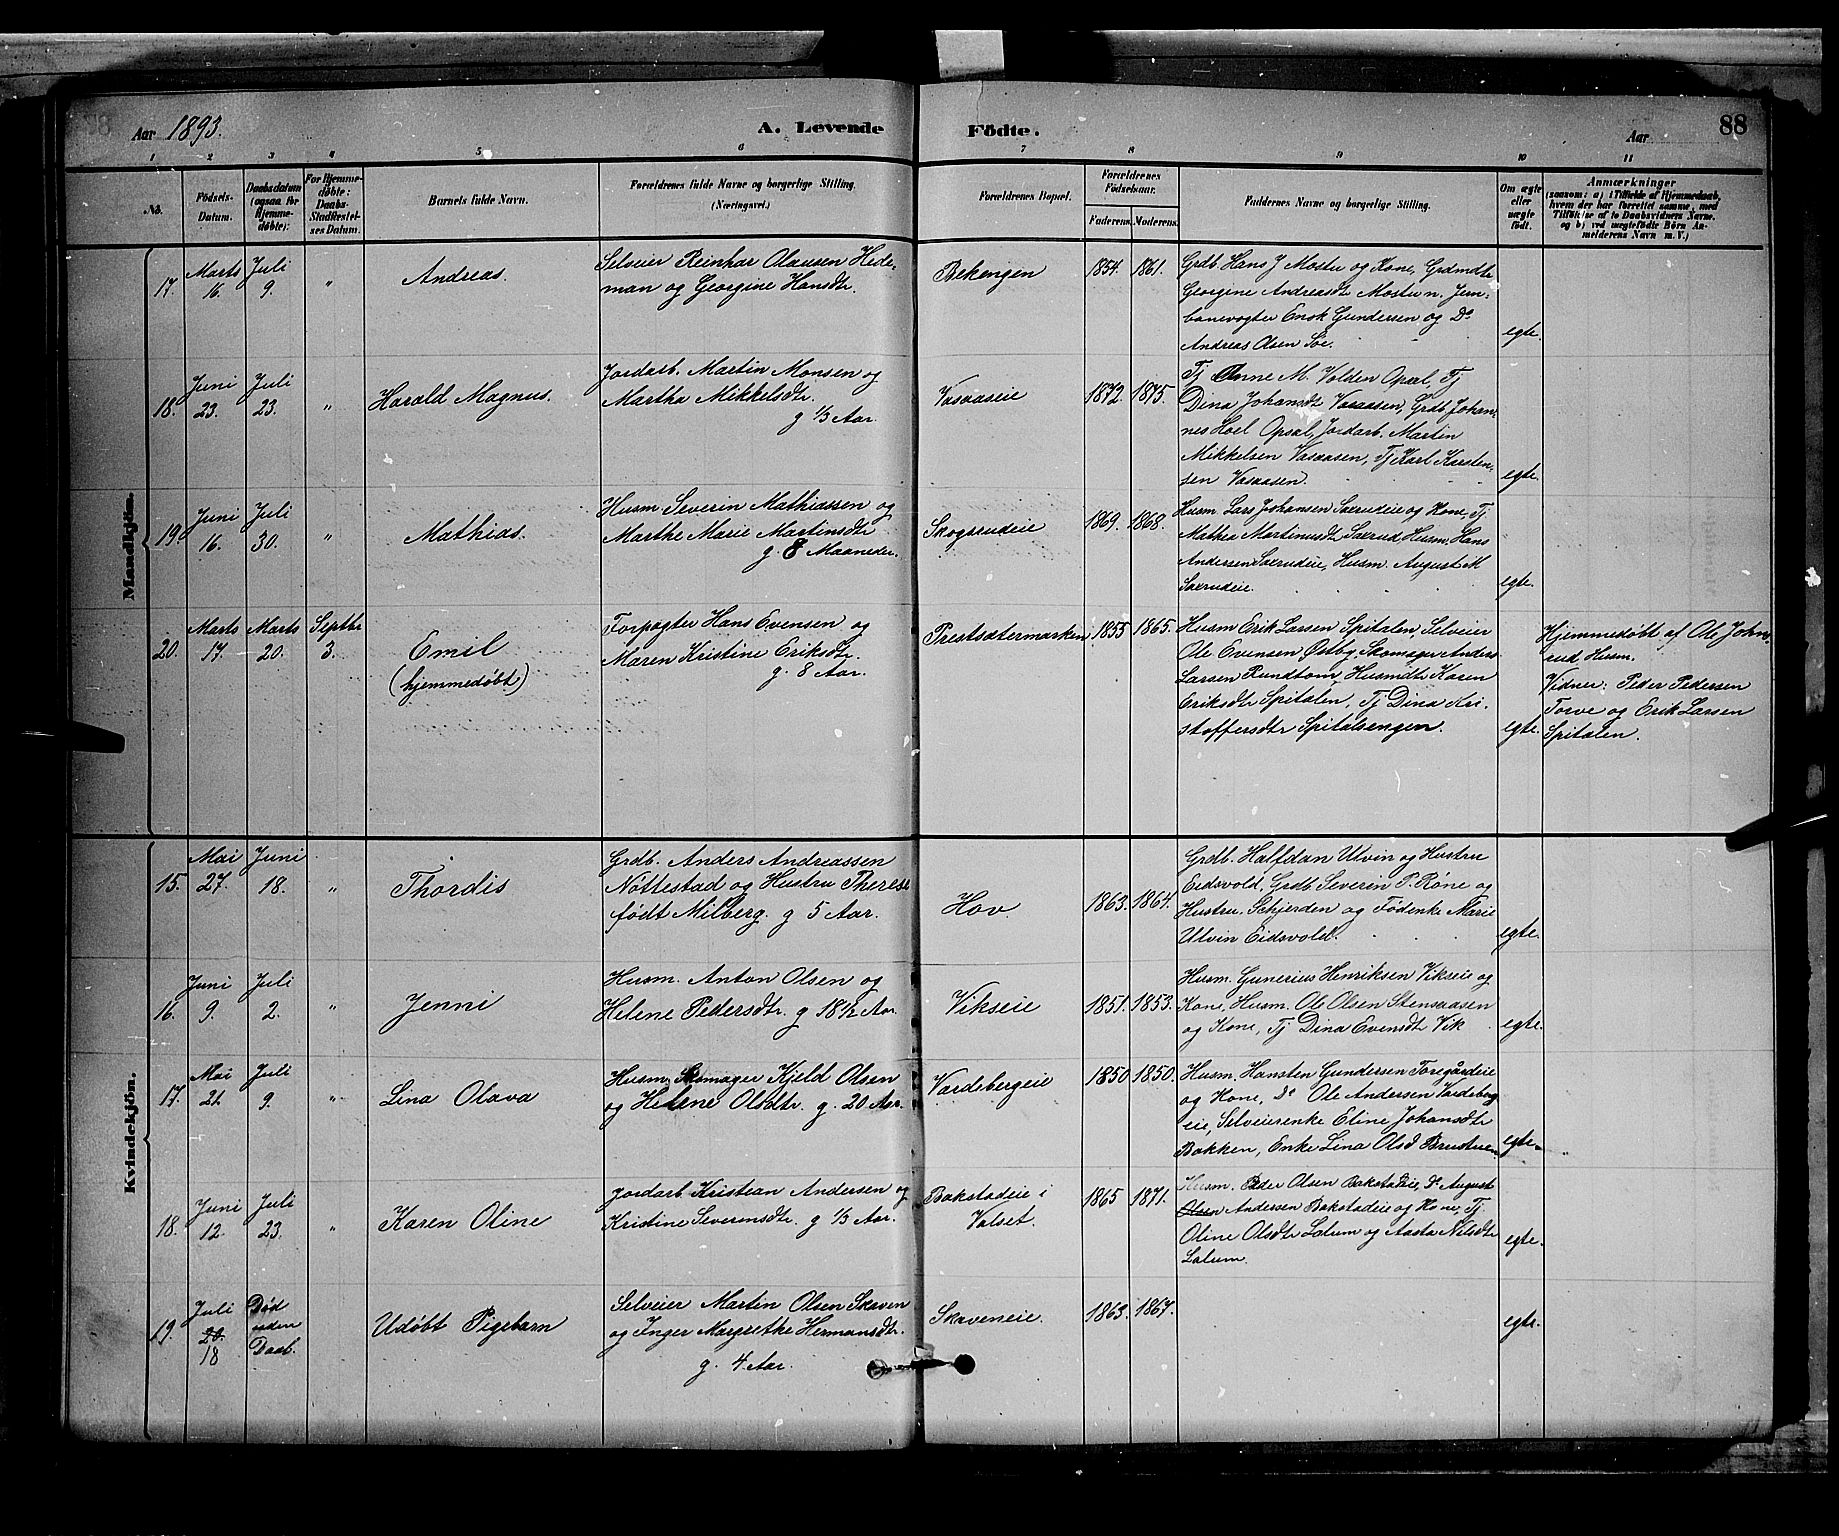 Aar 1893.
A. Levende Födte.
Aar
88
1 2 3 4 5 6 7 8 9 10 11
No.
Födsels-Datum.
Daabsdatum (ogsaa for Hjemmedöbte).
For Hjemmedöbte: Daabs-Stadfæstelses Datum.
Barnets fulde Navn.
Forældrenes fulde Navne og borgerlige Stilling.
(Næringsvei.)
Forældrenes Bopæl.
Forældrenes Födselsaar.
Faderens. Moderens.
Faddernes Navne og borgerlige Stilling.
Om ægte eller uægte födt.
Anmærkninger
(saasom: a) i Tilfælde af Hjemmedaab, hvem der har forrettet samme, med Tilföielse af to Daabsvidners Navne, og b) ved uægtefödte Börn Anmelderens Navn m. V.)
Mandkjön.
17. Marts 16. Juli 9. " Andreas.
Selveier Reinhar Olausen Hedeman og Georgine Hansdtr.
Bekengen 1854. 1861.
Grdb. Hans J Mostu og Kone, Grdmdtr
Georgine Andreasdtr Mostu n. Jernbanevogter Enok Gundersen og Do
Andreas Olsen Soe.
egte.
18. Juni 23. Juli 23. " Harald Magnus.
Jordarb. Martin Monsen og
Martha Mikkelsdtr.
g 1/3 Aar.
Vasaaseie 1872. 1875.
Tj Anne M. Volden Opsal, Tj
Dina Johansdtr Vasaasen, Grdb. Johannes Hoel Opsal, Jordarb. Martin
Mikkelsen Vasaasen, Tj Karl Karstensen Vasaasen.
egte.
19. Juni 16. Juli 30. " Mathias.
Husm Severin Mathiassen og
Marthe Marie Martinsdtr
g. 8 Maaneder.
Skogsrudeie 1869. 1868.
Husm Lars Johansen Saxrudeie og Kone, Tj
Mathea Martinusdt Saxrud Husm. Hans
Andersen Saxrudeie, Husm. August M
Saxrudeie.
egte.
20. Marts 17. Marts 20. Septbr 3. Emil
(hjemmedøbt)
Forpagter Hans Evensen og
Maren Kristine Eriksdtr.
g. 8 Aar.
Prestsætermarken 1855 1865.
Husm Erik Larsen Spitalen Selveier
Ole Evensen Østby, Skomager Anders
Larsen Rundtom, Husmdtr Karen
Eriksdtr Spitalen, Tj Dina Kristoffersdtr Spitalsengen.
egte.
Hjemmedøbt af Ole Johnrud, Husm.
Vidner: Peder Pedersen
Torve og Erik Larsen
Spitalen.
Kvindekjön.
15. Mai 27. Juni 18. " Thordis
Grdb. Anders Andreassen
Nöttestad og Hustru Therese
født Milberg. g 5 Aar.
Hov. 1863. 1864.
Grdb. Halfdan Utvin og Hustru
Eidsvold, Grdb. Severin P. Røne og
Hustru. Schjerden og Födenke Marie
Utvin Eidsvold.
egte.
16. Juni 9. Juli 2. " Jenni
Husm. Anton Olsen og
Helene Pedersdtr. g 18 1/2 Aar.
Vikseie 1851. 1853.
Husm. Gunerius Henriksen Vikseie og
Kone, Husm. Ole Olsen Stensaasen
og Kone, Tj Dina Evensdtr Vik
egte.
17. Mai 21. Juli 9. " Lina Olava
Husm. Skomager Kjeld Olsen
og Helene Olsdtr. g. 20 Aar.
Vardebergeie 1850 1850.
Husm. Hansten Gundersen Toregårdeie
og Kone, Do Ole Andersen Vardeberg
eie, Selveiersenke Eline Johansdtr
Bakken, Enke Lina Olsd Brustuen
egte.
18. Juni 12. Juli 23. " Karen Oline
Jordarb Kristian Andersen og
Kristine Severinsdtr. g 1/3 Aar.
Bakstadeie i Valset. 1865 1871.
Husm. Peder Olsen Bakstadeie, Do August
Olsen Andersen Bakstadeie og Kone, Tj.
Oline Olsdtr Lalum og Aasta Nilsdtr
Lalum.
egte.
19. Juli 20. 18 Död uden Daab. Udøbt Pigebarn
Selveier Martin Olsen Skaven
og Inger Margrethe Hermansdtr.
g. 4 Aar.
Skaveneie. 1863. 1867.
egte.